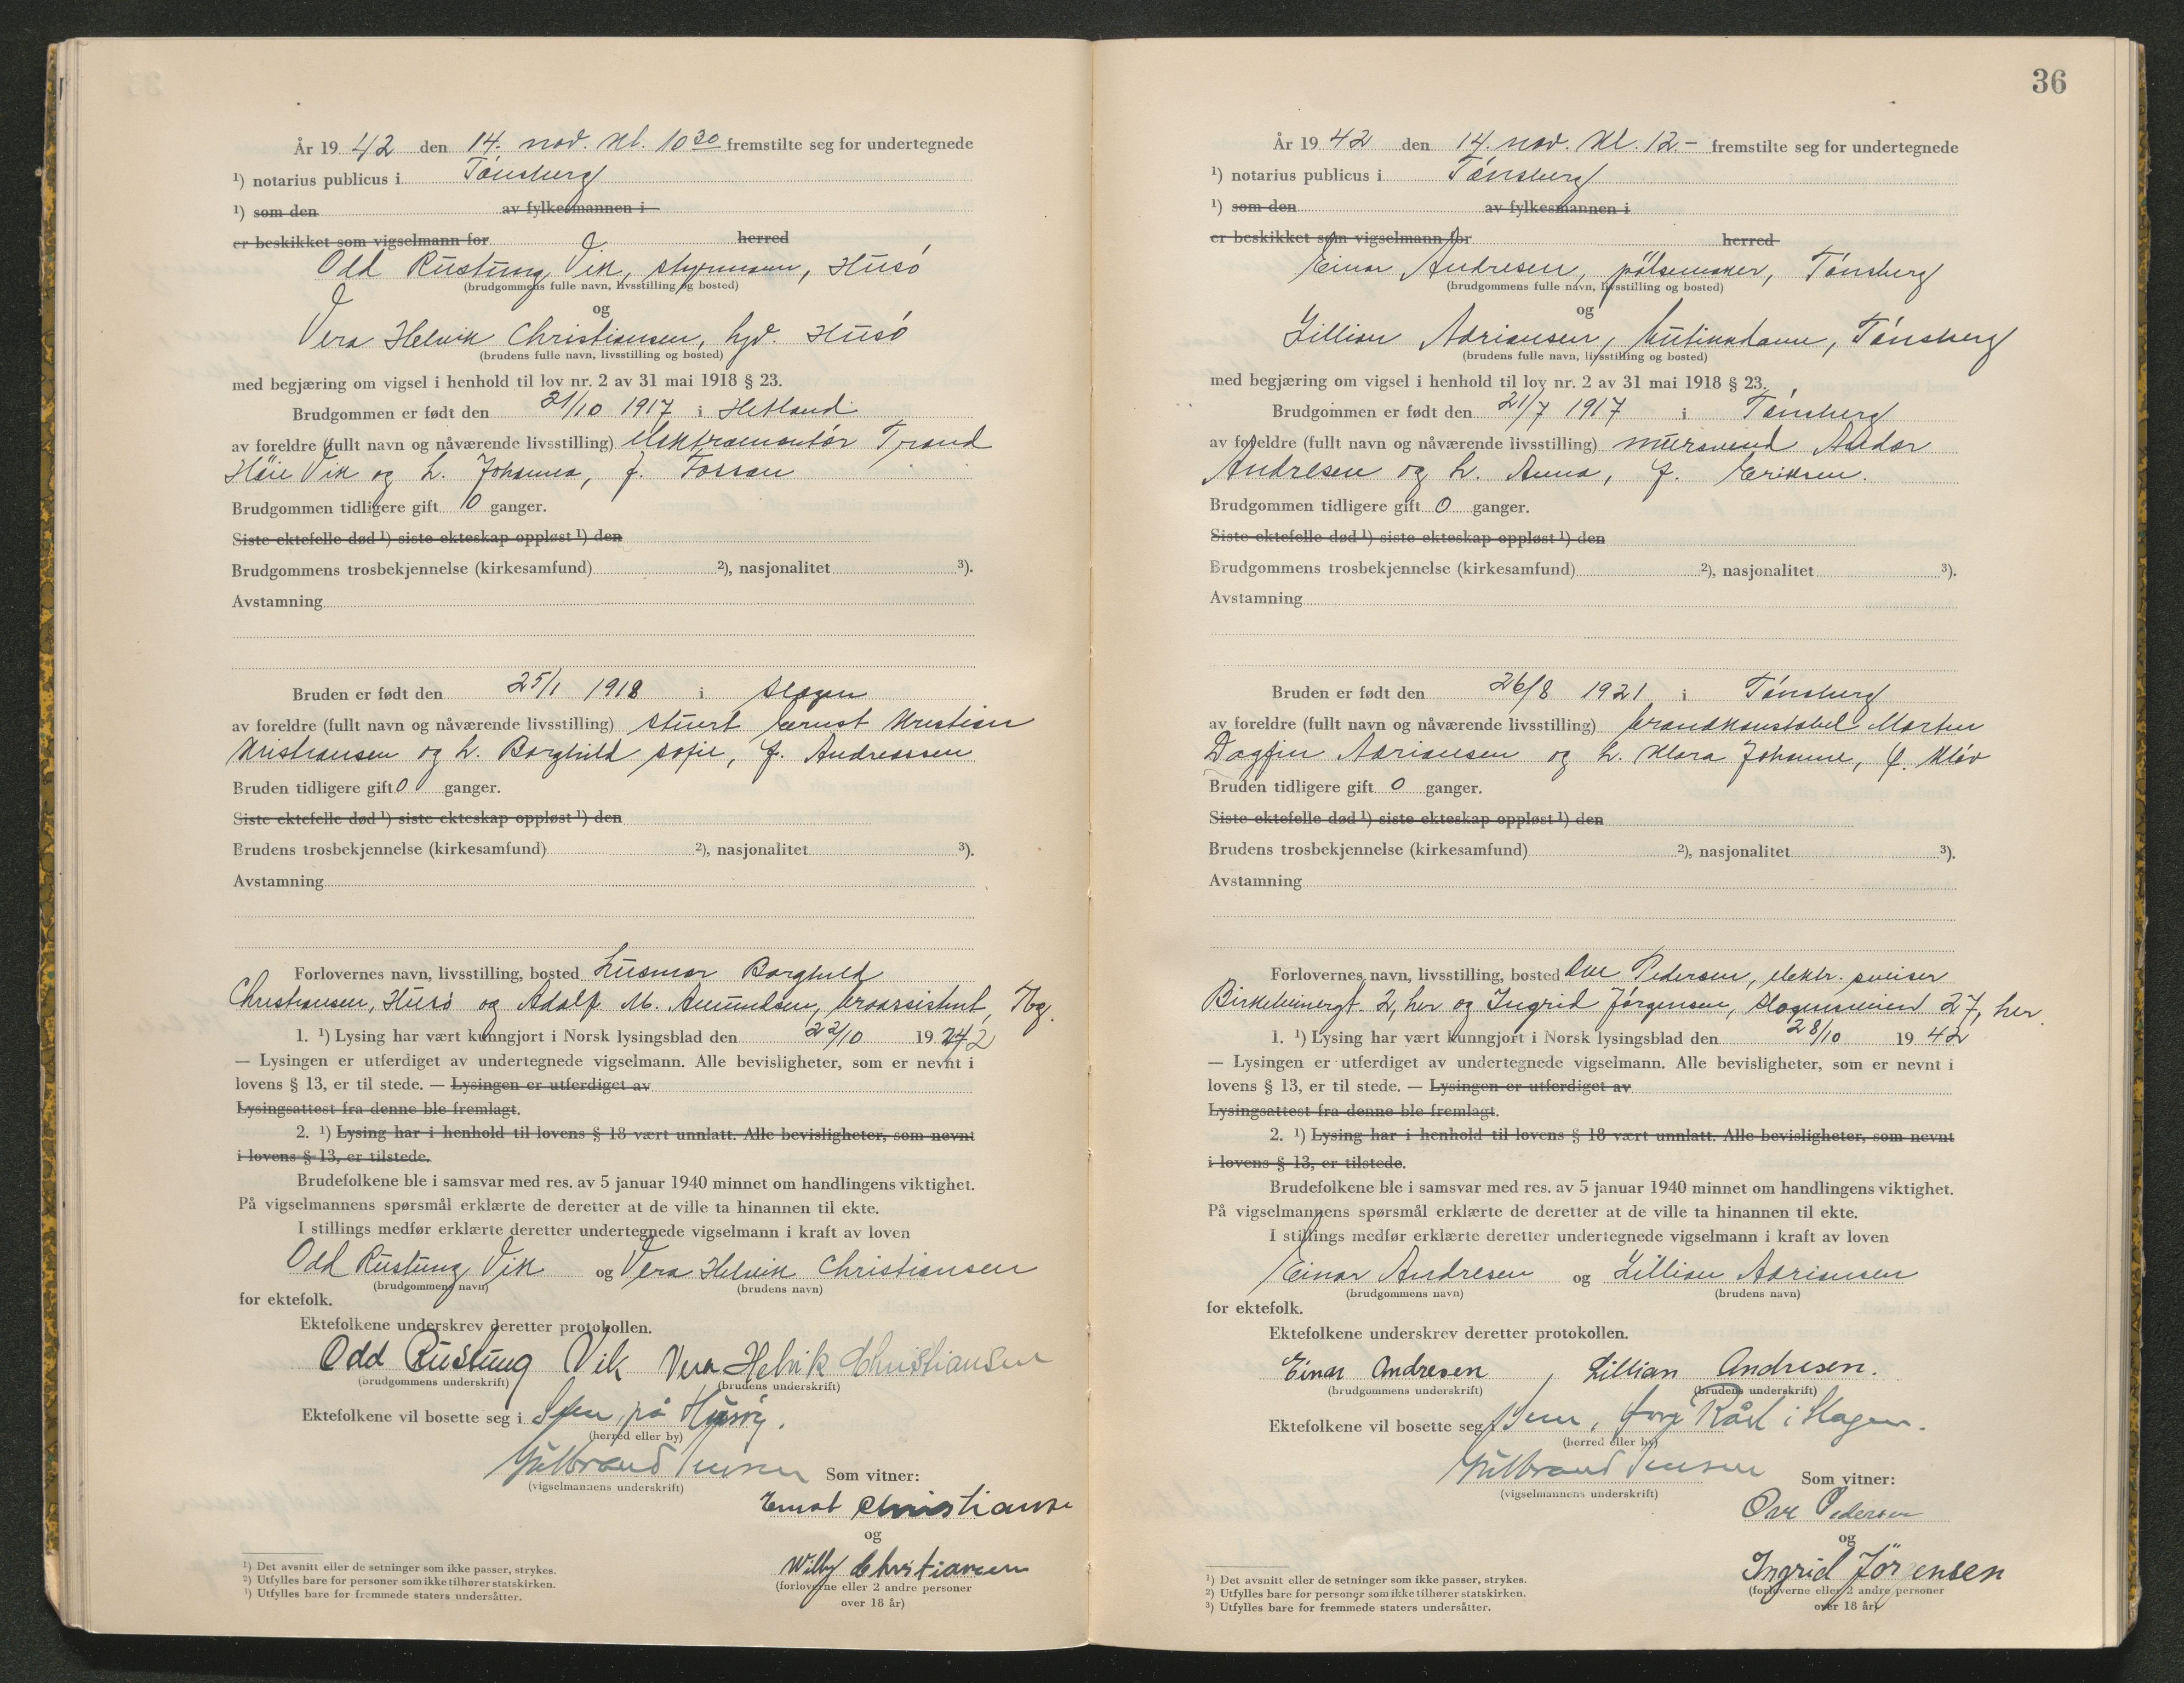 År 19 42 den 14. nov. kl. 10 30 fremstilte seg for undertegnede
¹) notarius publicus i Tønsberg
¹) som den av fylkesmannen i
er beskikket som vigselmann for herred
Odd Rustung Vik, styrmann, Husø
(brudgommens fulle navn, livsstilling og bosted)
og
Vera Helvik Christiansen, hjv. Husø
(brudens fulle navn, livsstilling og bosted)
med begjæring om vigsel i henhold til lov nr. 2 av 31 mai 1918 § 23.
Brudgommen er født den 21/10 1917 i Hetland
av foreldre (fullt navn og nåværende livsstilling) elektromontør Trond
Høie Vik og h. Johanna, f. Fossan
Brudgommen tidligere gift 0 ganger.
Siste ektefelle død ¹) siste ekteskap oppløst ¹) den
Brudgommens trosbekjennelse (kirkesamfund) ²), nasjonalitet ³).
Avstamning
Bruden er født den 25/1 1918 i Slagen
av foreldre (fullt navn og nåværende livsstilling) stuert Ernst Kristian
Kristiansen og h. Borghild Sofie, f. Andreassen
Bruden tidligere gift 0 ganger.
Siste ektefelle død ¹) siste ekteskap oppløst ¹) den
Brudens trosbekjennelse (kirkesamfund) ²), nasjonalitet ³).
Avstamning
Forlovernes navn, livsstilling, bosted husmor Borghild
Christiansen, Husø og Adolf M. Amundsen, broassistent, Tbg.
1. ¹) Lysing har vært kunngjort i Norsk lysingsblad den 22/10 19 42
— Lysingen er utferdiget av undertegnede vigselmann. Alle bevisligheter, som er nevnt i
lovens § 13, er til stede. — Lysingen er utferdiget av
Lysingsattest fra denne ble fremlagt.
2. ¹) Lysing har i henhold til lovens § 18 vært unnlatt. Alle bevisligheter, som nevnt
i lovens § 13, er tilstede.
Brudefolkene ble i samsvar med res. av 5 januar 1940 minnet om handlingens viktighet.
På vigselmannens spørsmål erklærte de deretter at de ville ta hinannen til ekte.
I stillings medfør erklærte deretter undertegnede vigselmann i kraft av loven
Odd Rustung Vik og Vera Helvik Christiansen
(brudgommens navn) (brudens navn)
for ektefolk.
Ektefolkene underskrev deretter protokollen.
Odd Rustung Vik Vera Helvik Christiansen
(brudgommens underskrift) (brudens underskrift)
Ektefolkene vil bosette seg i Sem, på Husøy.
(herred eller by)
Gulbrand Jensen Som vitner:
(vigselmannens underskrift)
Ernst Christianse
og
Willy Christiansen
(forloverne eller 2 andre personer
over 18 år)
¹) Det avsnitt eller de setninger som ikke passer, strykes.
²) Utfylles bare for personer som ikke tilhører statskirken.
¹) Utfylles bare for fremmede staters undersåtter.
36
År 19 42 den 14. nov. Kl. 12.- fremstilte seg for undertegnede
¹) notarius publicus i Tønsberg
¹) som den av fylkesmannen i
er beskikket som vigselmann for herred
Einar Andresen, pølsemaker, Tønsberg
(brudgommens fulle navn, livsstilling og bosted)
og
Lillian Adriansen, butikkdame, Tønsberg
(brudens fulle navn, livsstilling og bosted)
med begjæring om vigsel i henhold til lov nr. 2 av 31 mai 1918 § 23.
Brudgommen er født den 21/7 1917 i Tønsberg
av foreldre (fullt navn og nåværende livsstilling) mursvend Andor
Andresen og h. Anna, f. Eriksen.
Brudgommen tidligere gift 0 ganger.
Siste ektefelle død ¹) siste ekteskap oppløst ¹) den
Brudgommens trosbekjennelse (kirkesamfund) ²), nasjonalitet ³).
Avstamning
Bruden er født den 26/8 1921 i Tønsberg
av foreldre (fullt navn og nåværende livsstilling) brandkonstabel Morten
Dagfin Adriansen og h. Klara Johanne, f. Kløv
Bruden tidligere gift 0 ganger.
Siste ektefelle død ¹) siste ekteskap oppløst ¹) den
Brudens trosbekjennelse (kirkesamfund) ²), nasjonalitet ³).
Avstamning
Forlovernes navn, livsstilling, bosted Ove Pedersen, elektr. sveiser
Birkebeinergt. 2, her og Ingrid Jørgensen, Slagensveien 27, her.
1. ¹) Lysing har vært kunngjort i Norsk lysingsblad den 28/10 19 42
— Lysingen er utferdiget av undertegnede vigselmann. Alle bevisligheter, som er nevnt i
lovens § 13, er til stede. — Lysingen er utferdiget av
Lysingsattest fra denne ble fremlagt.
2. ¹) Lysing har i henhold til lovens § 18 vært unnlatt. Alle bevisligheter, som nevnt
i lovens § 13, er tilstede.
Brudefolkene ble i samsvar med res. av 5 januar 1940 minnet om handlingens viktighet.
På vigselmannens spørsmål erklærte de deretter at de ville ta hinannen til ekte.
I stillings medfør erklærte deretter undertegnede vigselmann i kraft av loven
Einar Andresen og Lillian Adriansen
(brudgommens navn) (brudens navn)
for ektefolk.
Ektefolkene underskrev deretter protokollen.
Einar Andresen, Lillian Andresen.
(brudgommens underskrift) (brudens underskrift)
Ektefolkene vil bosette seg i Sem, Råel i Slagen.
(herred eller by)
Gulbrand Jensen Som vitner:
(vigselmannens underskrift)
Ove Pedersen
og
Ingrid Jørgensen
(forloverne eller 2 andre personer
over 18 år)
¹) Det avsnitt eller de setninger som ikke passer, strykes.
²) Utfylles bare for personer som ikke tilhører statskirken.
³) Utfylles bare for fremmede staters undersåtter.